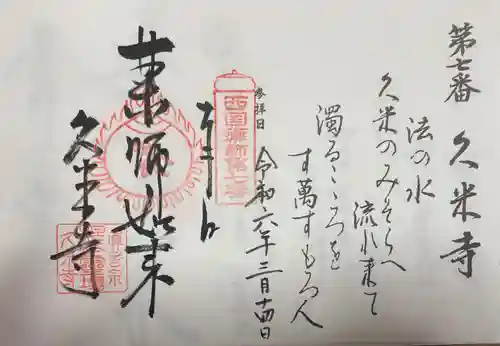 第七番 久米寺
法の水
久米のみてらへ
流れ来て
濁るこゝろを
す萬すもろ人
参拝日
令和六年三月十四日
西国薬師第七番
薬師如来
久米寺